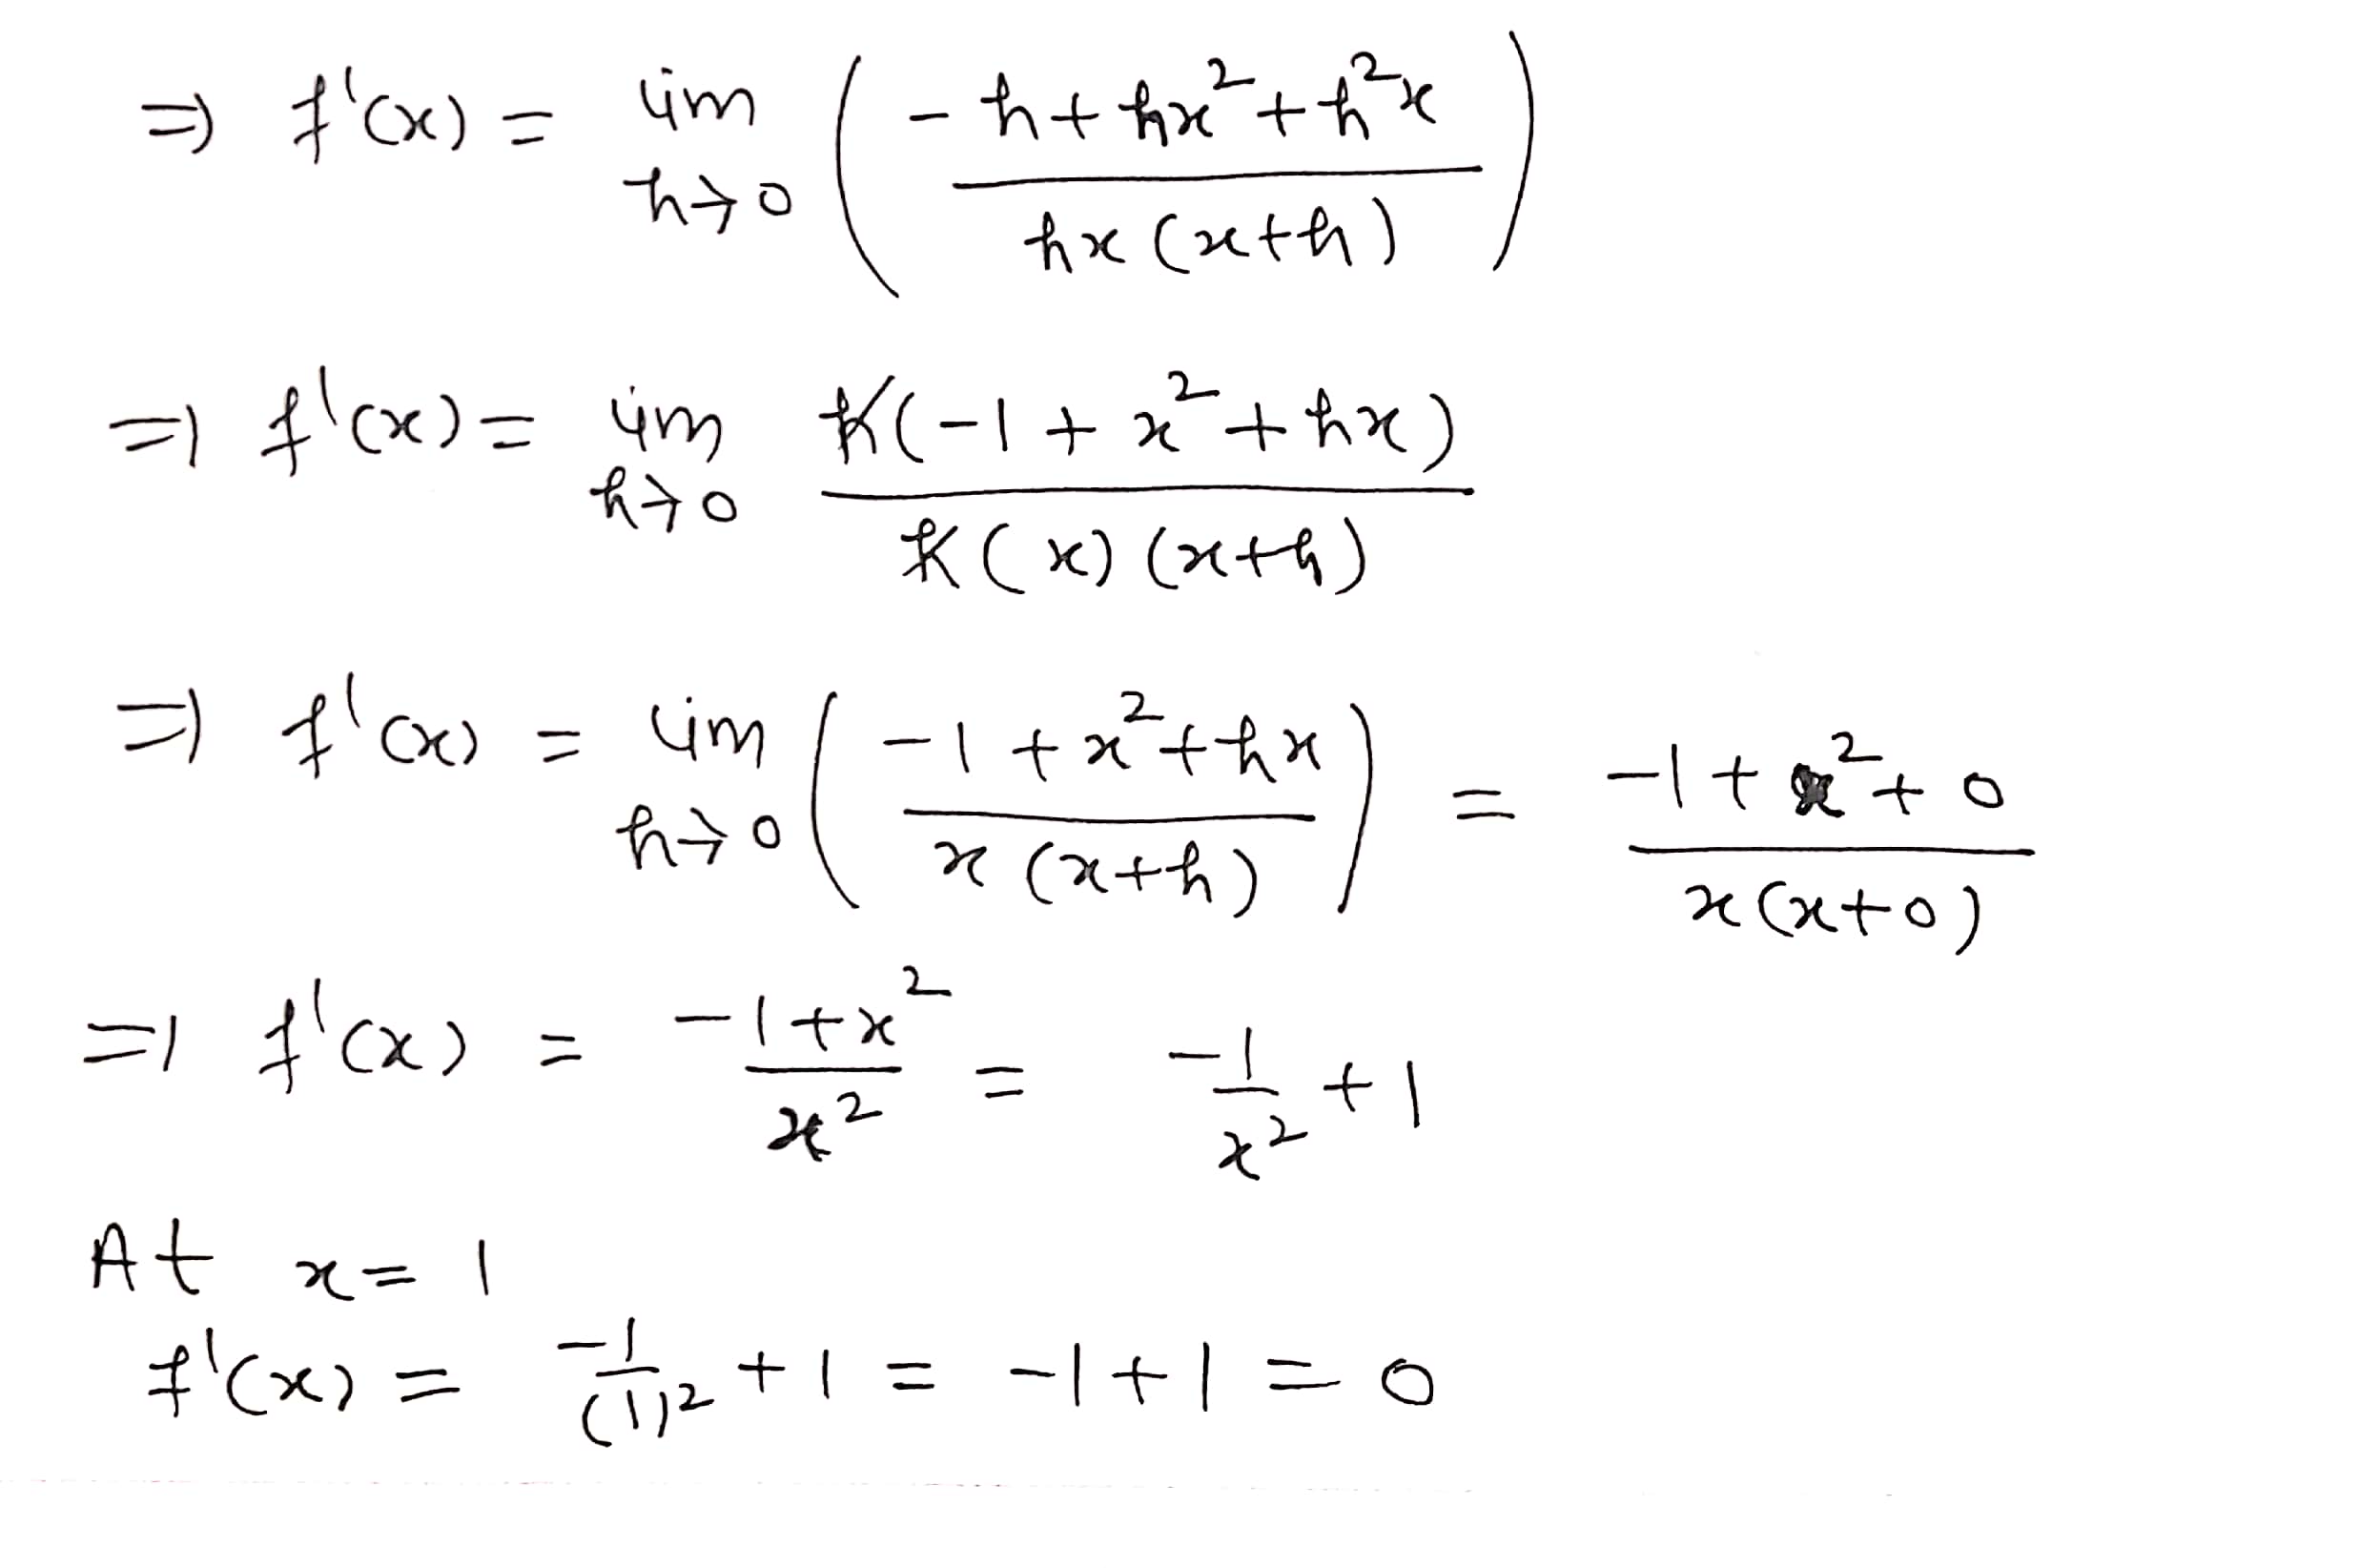 ⇒ f'(x) = lim h→0 ( (-h + hx² + h²x) / (hx(x+h)) )
⇒ f'(x) = lim h→0 h(-1 + x² + hx) / (h(x)(x+h))
⇒ f'(x) = lim h→0 ( (-1 + x² + hx) / (x(x+h)) ) = (-1 + x² + 0) / (x(x+0))
⇒ f'(x) = (-1 + x²) / x² = -1/x² + 1
At x = 1
f'(x) = -1/(1)² + 1 = -1 + 1 = 0